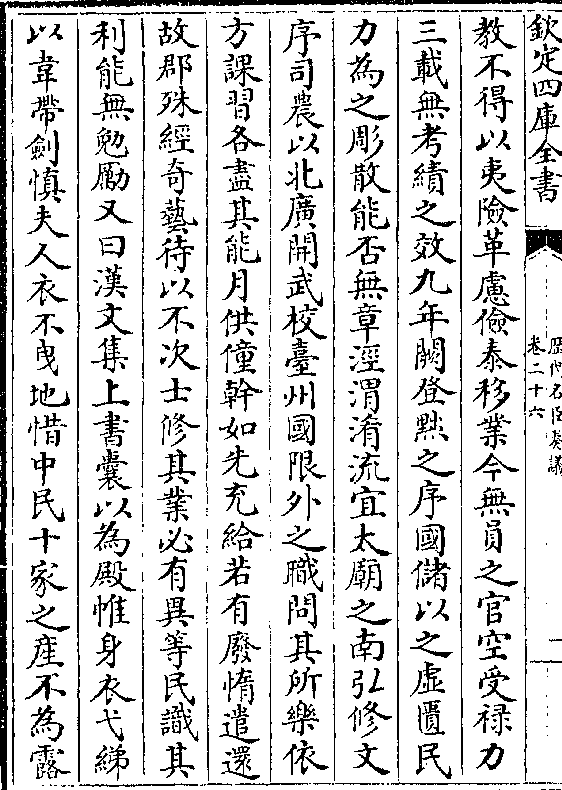 欽定四庫全書
歷代名臣奏議
卷二十六
二
教不得以夷險革慮儉泰移業今無員之官空受祿力
三載無考績之效九年闕登黜之序國儲以之虛匱民
力為之彫散能否無章涇渭淆流宜太廟之南弘修文
序司農以北廣開武校臺州國限外之職問其所樂依
方課習各盡其能月供僮幹如先充給若有廢惰遣還
故郡殊經奇藝待以不次士修其業必有異等民識其
利能無勉勵又曰漢文集上書囊以為殿帷身衣弋綈
以韋帶劍慎夫人衣不曳地惜中民十家之產不為露